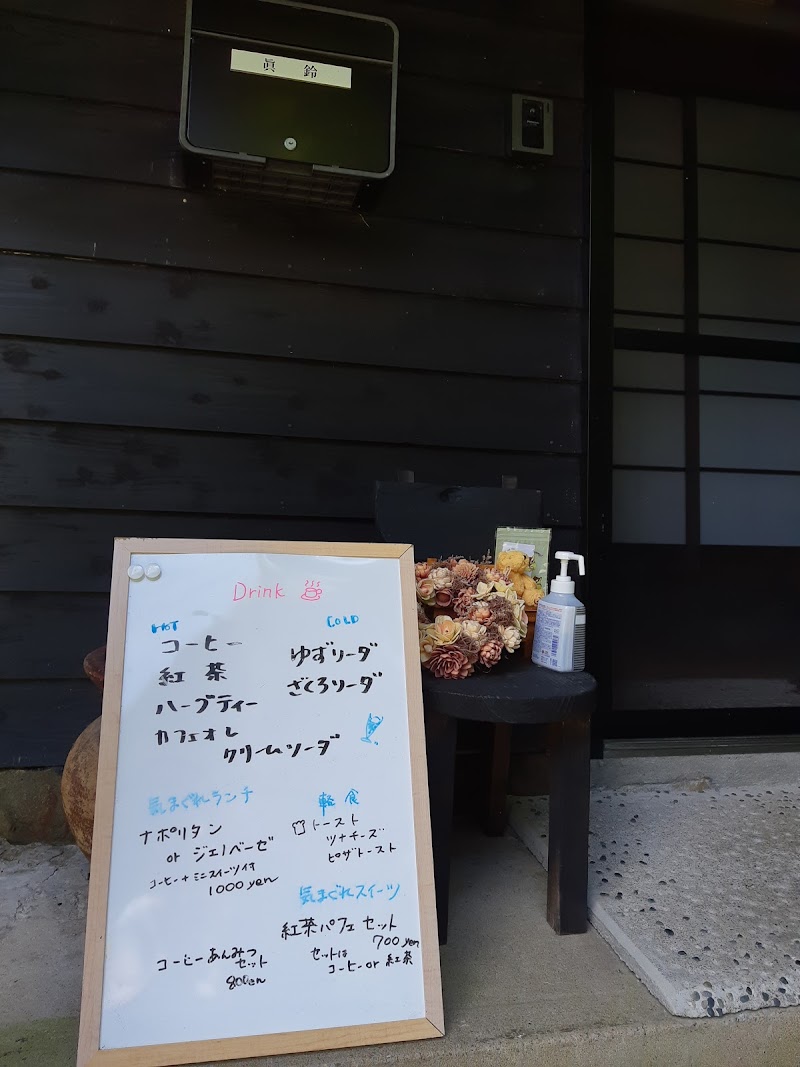 眞鈴
Drink
HOT
コーヒー
紅茶
ハーブティー
カフェオレ
COLD
ゆずソーダ
ざくろソーダ
クリームソーダ
気まぐれランチ
ナポリタン
or ジェノベーゼ
コーヒー+ミニスイーツ付
1000yen
軽食
トースト
ツナチーズ
ピザトースト
気まぐれスイーツ
紅茶パフェセット
700yen
セットは
コーヒーor紅茶
コーヒーあんみつ
セット
800en